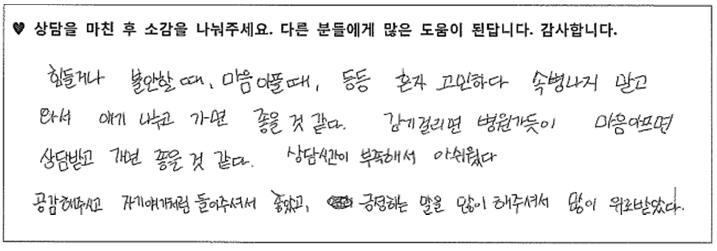 ♥ 상담을 마친 후 소감을 나눠주세요. 다른 분들에게 많은 도움이 된답니다. 감사합니다.
힘들거나 불안할 때, 마음 아플 때, 등등 혼자 고민하다 속병나지 말고
와서 얘기 나누고 가면 좋을 것 같다. 감기걸리면 병원가듯이 마음아프면
상담받고 가면 좋을 것 같다. 상담시간이 부족해서 아쉬웠다
공감해주시고 자기얘기처럼 들어주셔서 좋았고, 긍정하는 말을 많이 해주셔서 많이 위로받았다.